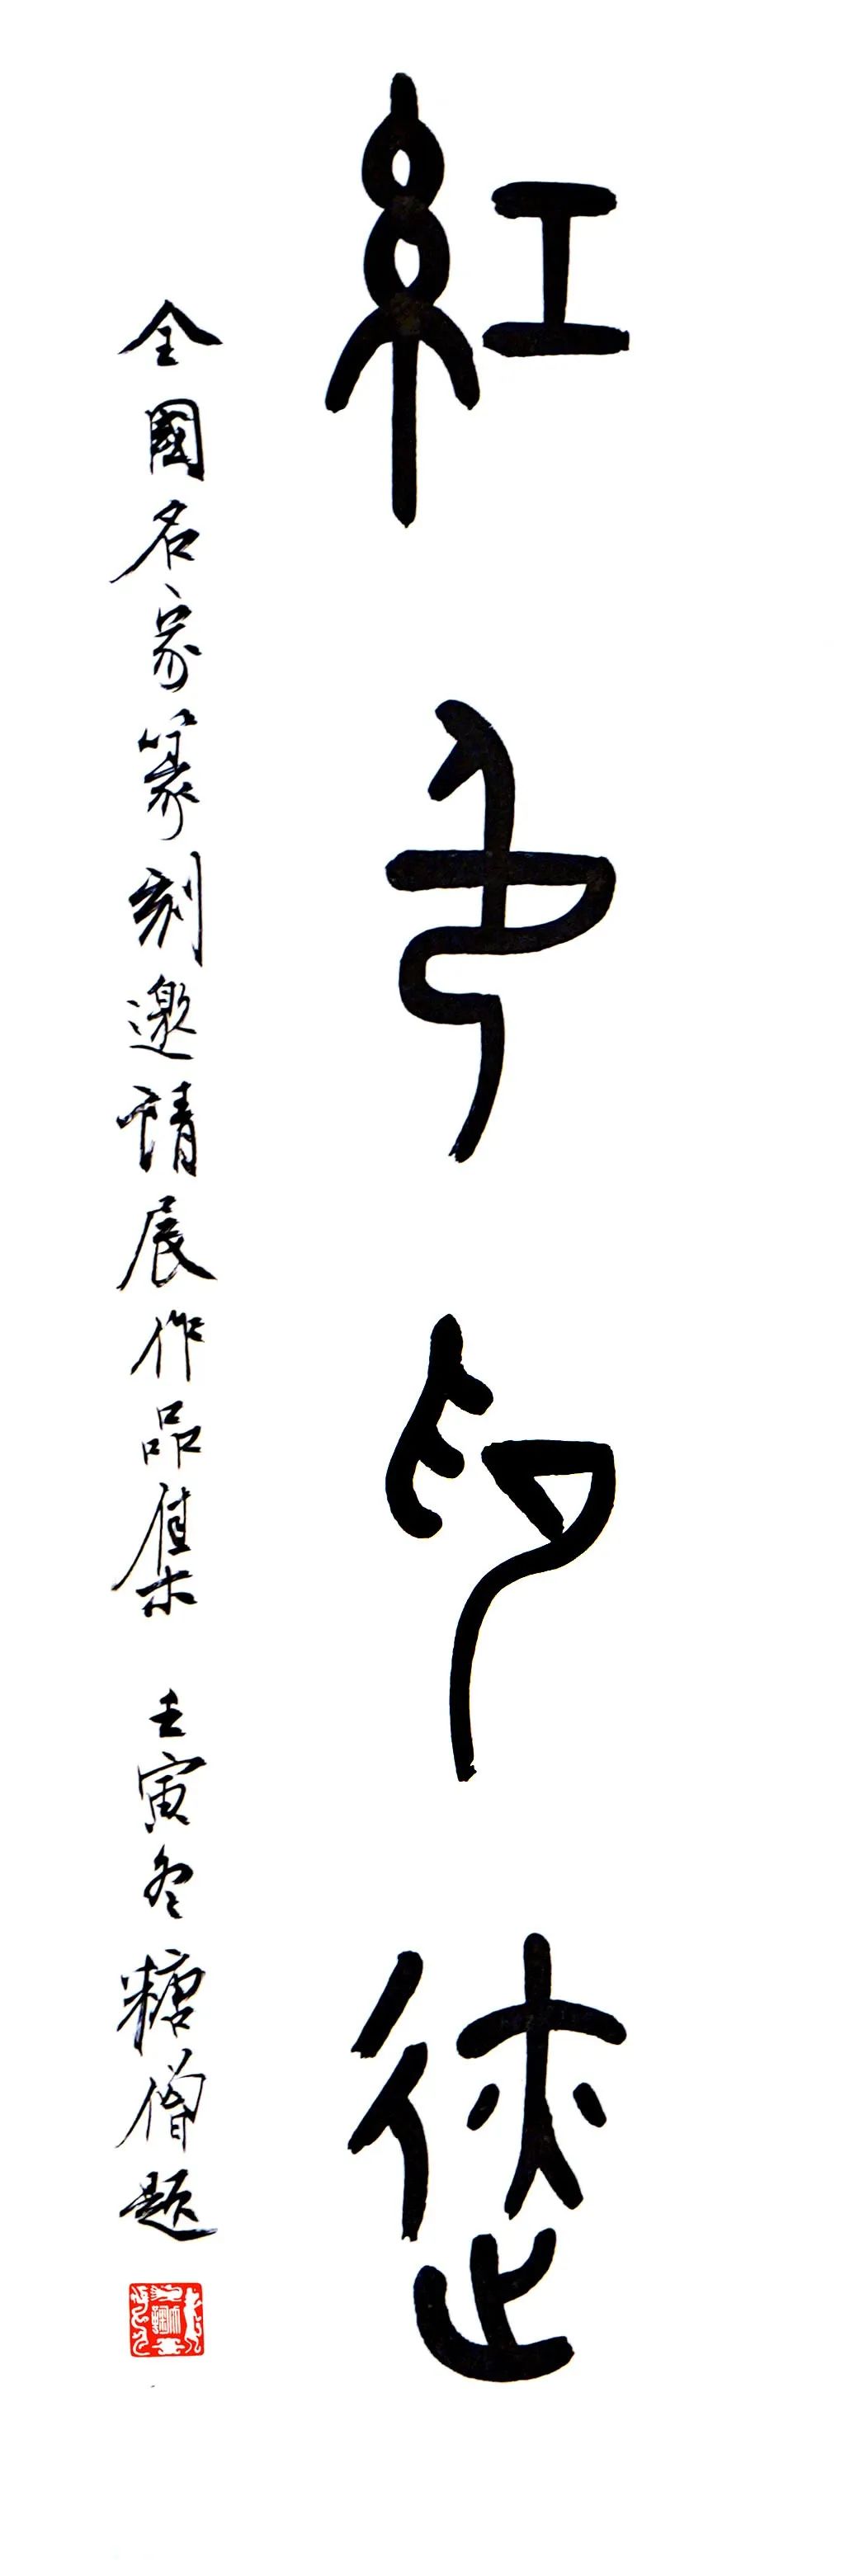 紅色印迹
全國名家篆刻邀請展作品集 壬寅冬糖僧題